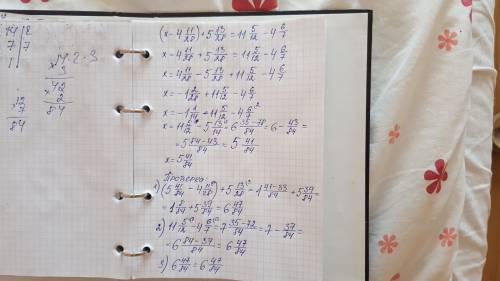 14 | 2
7 | 7
1
14·2·3
× 3
42
× 2
84
×12
7
84
(x-4 11/28)+5 13/28=11 5/12-4 6/7
x-4 11/28+5 13/28=11 5/12-4 6/7
x=4 11/28-5 13/28+11 5/12-4 6/7
x=-1 2/28+11 5/12-4 6/7
x=-1 1/14+11 5/12-4 6/7
x=11 5/12-5 13/14=6 35-78/84=6-43/84=
=5 84-43/84=5 41/84
x=5 41/84
Проверка:
1) (5 41/84-4 11/28)+5 13/28=1 41-33/84+5 39/84=
=1 8/84+5 39/84=6 47/84
2) 11 5/12-4 6/7=7 35-72/84=7-37/84=
=6 84-37/84=6 47/84
3) 6 47/84=6 47/84